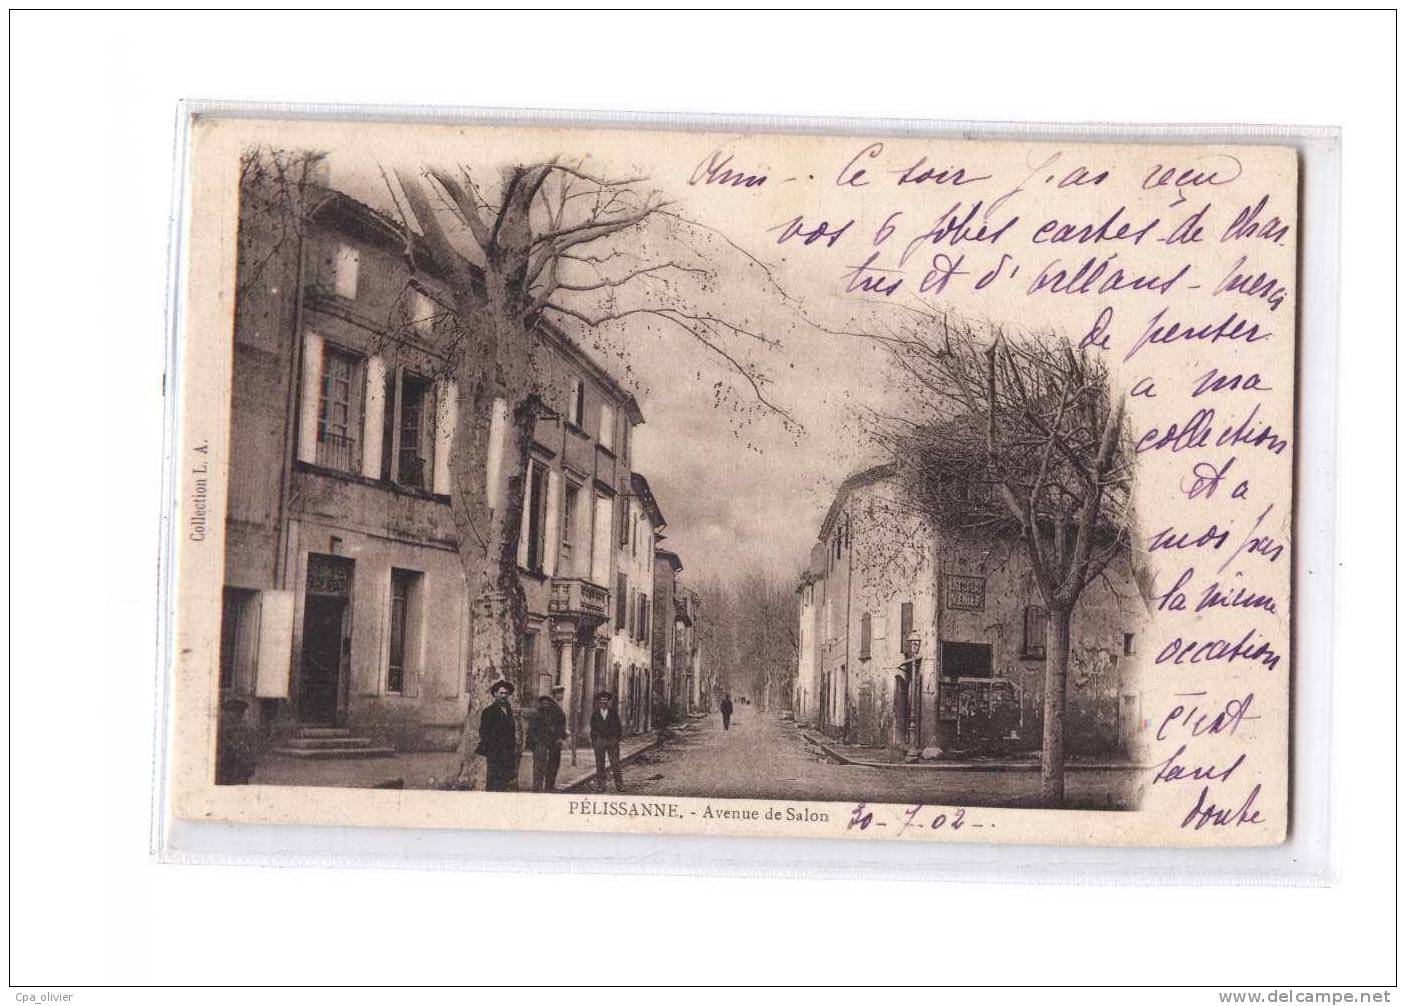 Ami - . Ce soir J'ai reçu
vos 6 jolies cartes de Char
tres et d'Orléans - merci
de penser
a ma
collection
et a
moi par
la même
occasion
c'est
sans
doute
Collection L. A.
PÉLISSANNE. - Avenue de Salon 30-7.02-.
Cpa_olivier
www.delcampe.net